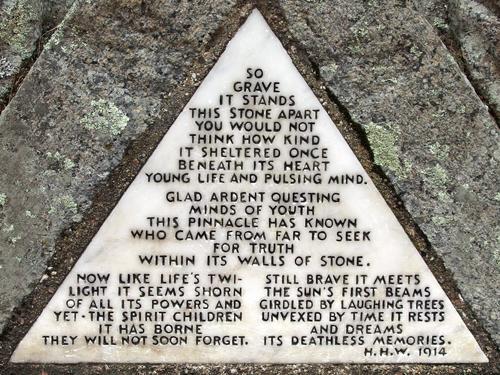 SO
GRAVE
IT STANDS
THIS STONE APART
YOU WOULD NOT
THINK HOW KIND
IT SHELTERED ONCE
BENEATH ITS HEART
YOUNG LIFE AND PULSING MIND.
GLAD ARDENT QUESTING
MINDS OF YOUTH
THIS PINNACLE HAS KNOWN
WHO CAME FROM FAR TO SEEK
FOR TRUTH
WITHIN ITS WALLS OF STONE.
NOW LIKE LIFE'S TWI-
LIGHT IT SEEMS SHORN
OF ALL ITS POWERS AND
YET-THE SPIRIT CHILDREN
IT HAS BORNE
THEY WILL NOT SOON FORGET.
STILL BRAVE IT MEETS
THE SUN'S FIRST BEAMS
GIRDLED BY LAUGHING TREES
UNVEXED BY TIME IT RESTS
AND DREAMS
ITS DEATHLESS MEMORIES.
H.H.W. 1914